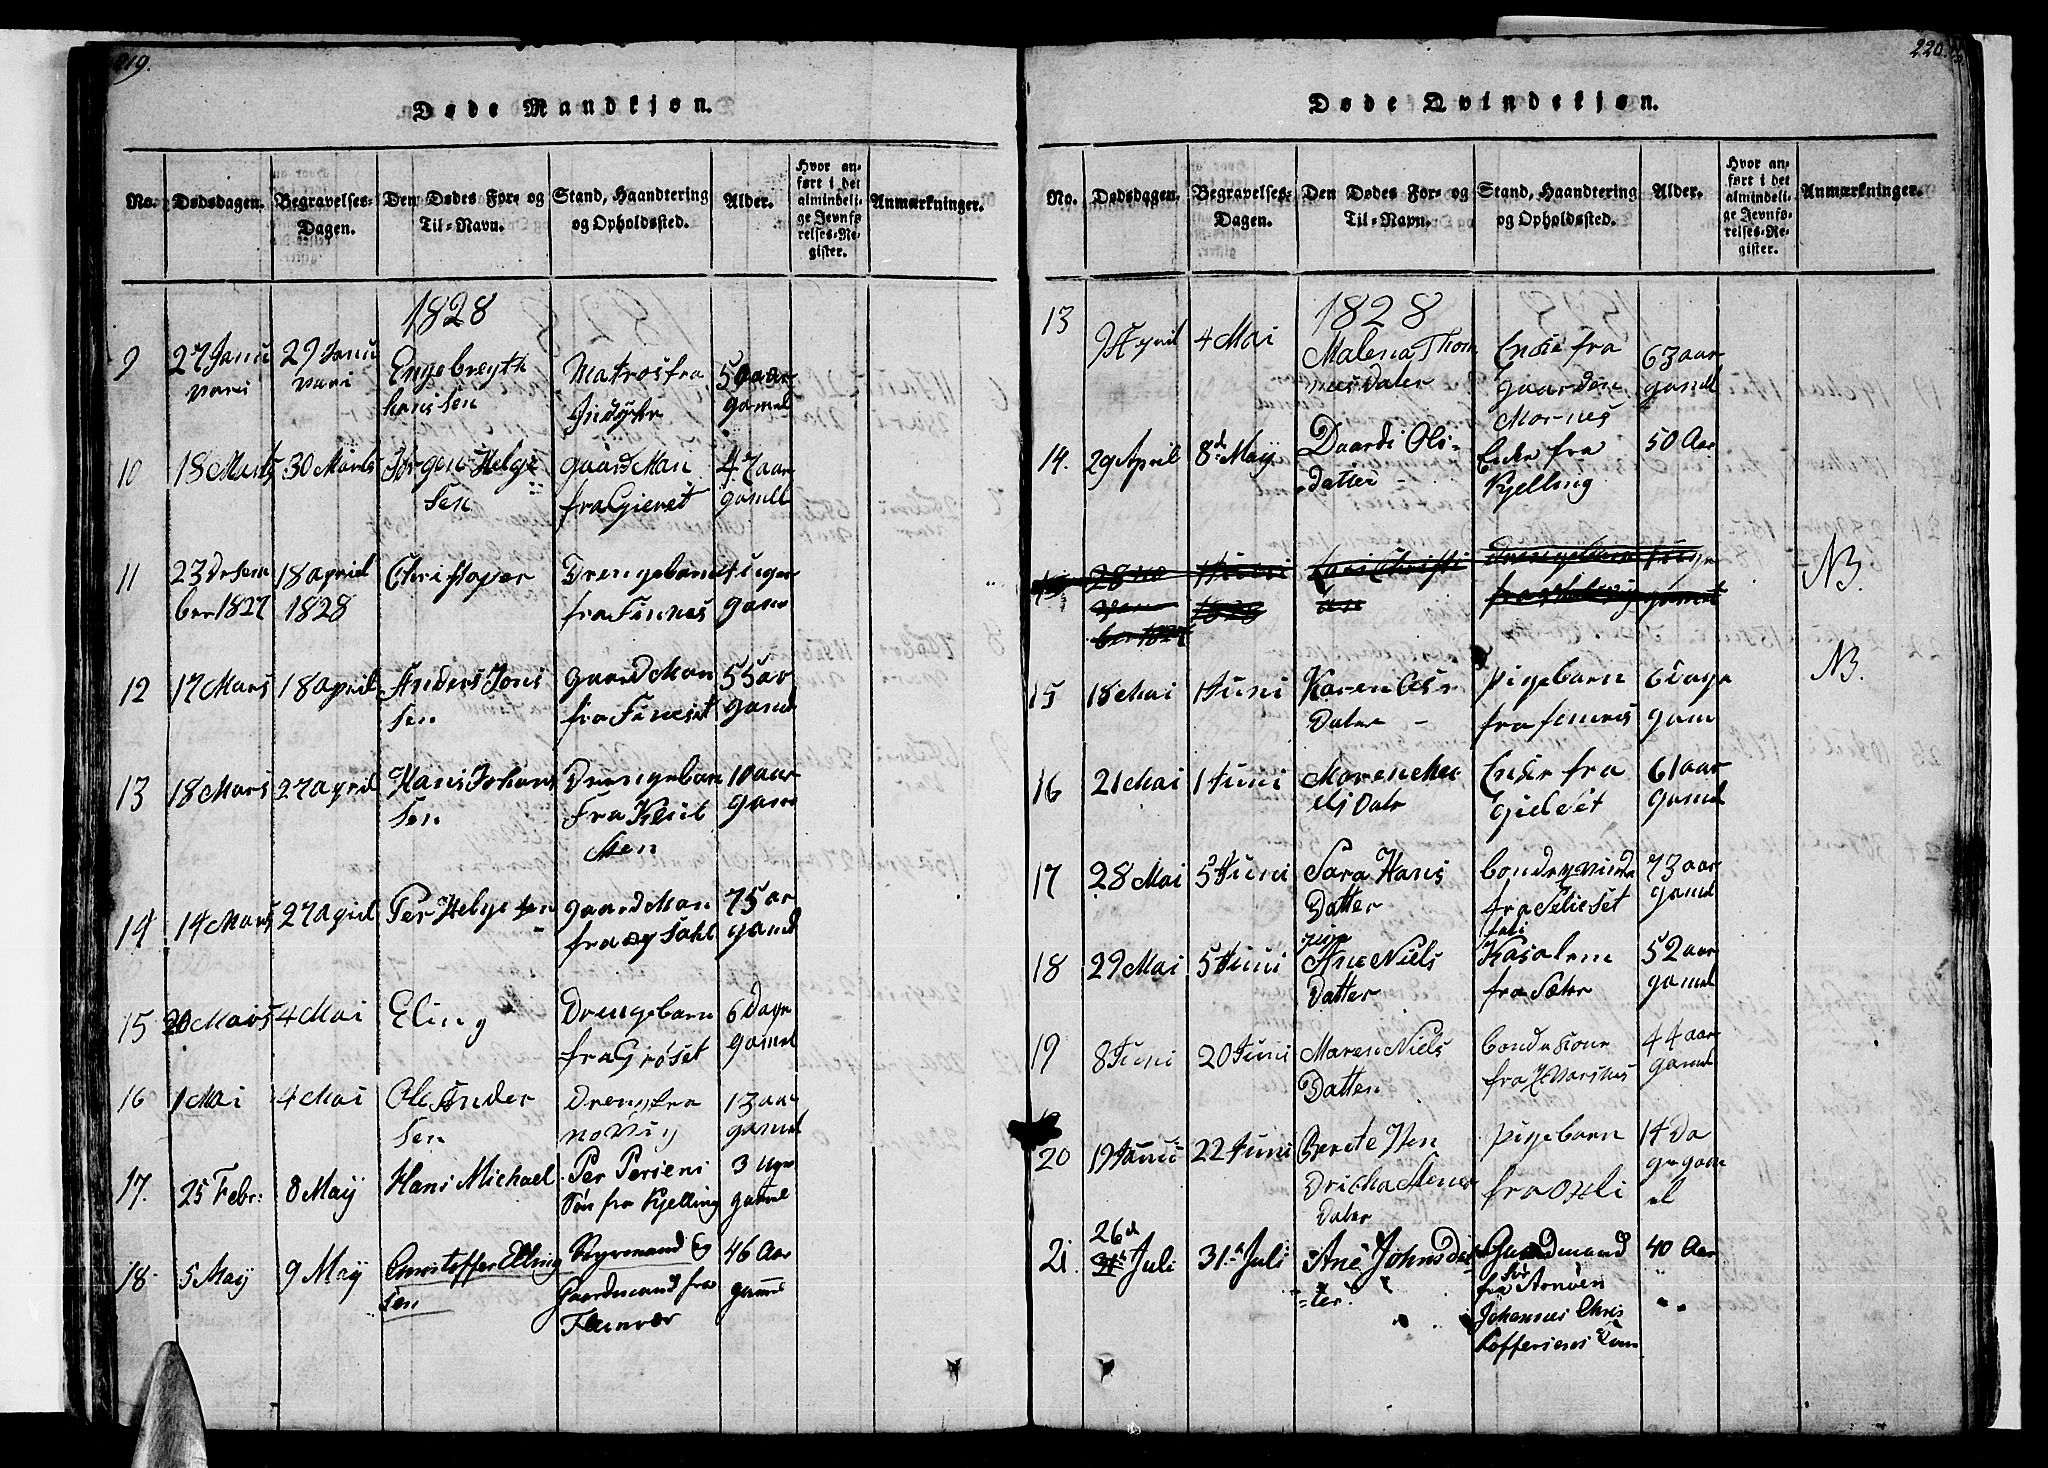 219.
Døde Mandkjøn.
No.
Dødsdagen.
Begravelses-
Dagen.
Den Dødes For- og
Til-Navn.
Stand, Haandtering
og Opholdssted.
Alder.
Hvor an-
ført i det
almindeli-
ge Jevnfø-
relses-Re-
gister.
Anmærkninger.
1828
9
27 Janu
vari
29 Janu
vari
Engebregth
hans Sen
Matros fra
Indyhr
50 aar
gamel
10
18 Marts
30 Marts
Jørgen Helge
Sen
gaard Man
fra Gieret
47 aar
gamel
11
23 Desem
ber 1827
18 april
1828
Christoper
Drengebarn
fra Finnes
gam
12
17 Mars
18 april
Anders Jons
Sen
gaard Man
fra Fineset
55 aar
gamel
13
18 Mars
27 april
Hans Johans
Sen
Drengebarn
Fra
Men
10 aar
gam
14
14 Mars
27 april
Per Helge Sen
gaard Man
fra øg Sahl
75 ar
gamel
15
20 Mars
4 Mai
Eling
Drengebarn
fra Grøset
6 Dage
gamel
16
1 Mai
4 Mai
Ole Ander
Sen
Dreng fra
no Vig
13 aar
gamel
17.
25 Febr:
8 May
Hans Michael
Per Persens
Søn fra Kjelling
3 uger
gamel
18.
5 May
9 May
Christoffer Elling
Sen
Styrmand og
Gaardmand fra
Fleinvær
46 Aar
gamel
220.
Døde Qvindekjøn.
No.
Dødsdagen.
Begravelses-
Dagen.
Den Dødes For- og
Til-Navn.
Stand, Haandtering
og Opholdssted.
Alder.
Hvor an-
ført i det
almindeli-
ge Jevnfø-
relses-Re-
gister.
Anmærkninger.
1828
13
9 April
4 Mai
Malena Thom
mesDater
Enke fra
gaarden
Mornes
63 aar
gamel
14.
29 April
8d May
Daardi Ols-
datter -
Enke fra
Kjelling
50 Aar
28 no
ber 1827
1 Juni
1828
Lars Christi
an
Drengebarn
fra
gamel
NB.
15
18 Mai
1 Juni
Karen Ols
Dater -
pigebarn
fra
6 Dage
gam
NB.
16
21 Mai
1 Juni
Maren
Dater
Enke fra
Gieldset
61 aar
gamel
17
28 Mai
5 Juni
Sara Hans
Datter
bondeqvinde
fra Selieset
73 aar
gamel
18
29 Mai
5 Juni
pige
Ane Niels
Datter
fali
Kasalem
fra Sæter
52 aar
gamel
19
8 Juni
20 Juni
Maren Niels
Datter
bonde kone
fra
44 aar
gamel
20
19 Juni
22 Juni
Berete Hen
Dricha
Dater
pigebarn
fra Oxli
14 Da
ge gam
el
21.
26d
31te Juli
31te Juli
Ane Johnsdat-
-ter.
Gaardmand
for
fra Arnøen
Johannes Chris
toffersens Kone
40 Aar